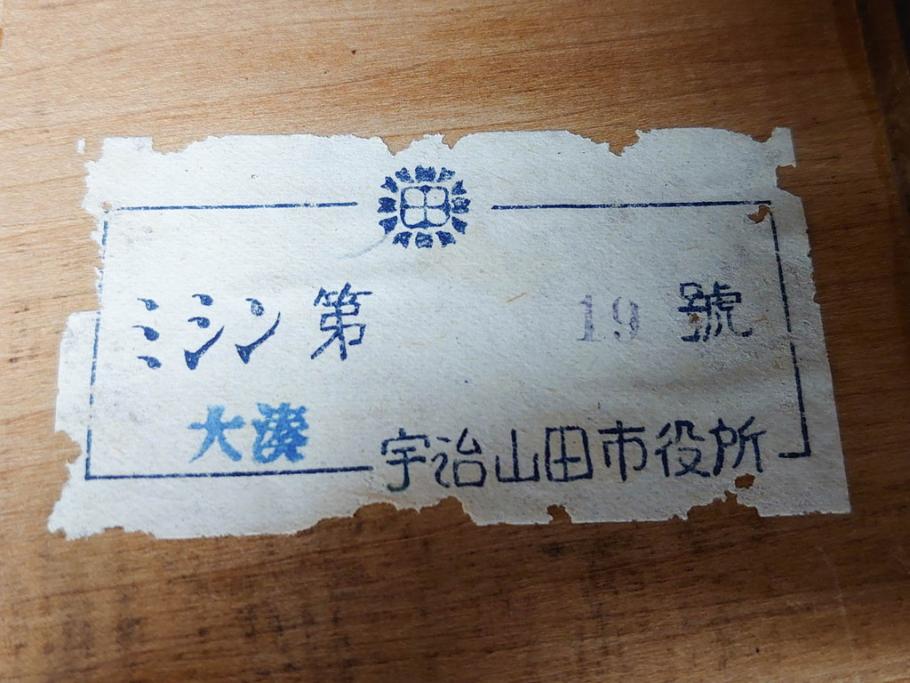 田
ミシン第 19 號
大湊 宇治山田市役所